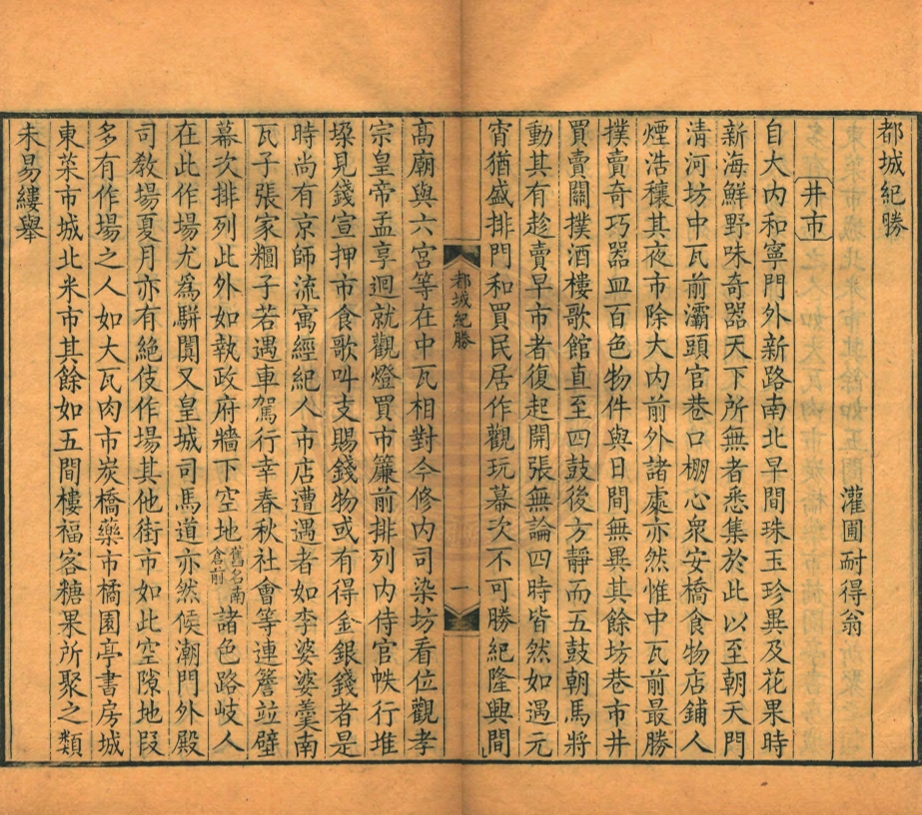 都城紀勝
灌圃耐得翁
井市
自大内和寧門外新路南北早間珠玉珍異及花果時
新海鮮野味奇器天下所無者悉集於此以至朝天門
清河坊中瓦前灞頭官巷口棚心衆安橋食物店鋪人
煙浩穰其夜市除大内前外諸處亦然惟中瓦前最勝
撲賣奇巧器皿百色物件與日間無異其餘坊巷市井
買賣關撲酒樓歌館直至四鼓後方靜而五鼓朝馬將
動其有趁賣早市者復起開張無論四時皆然如遇元
宵猶盛排門和買民居作觀玩幕次不可勝紀隆興間
都城紀勝
一
高廟與六宮等在中瓦相對今修内司染坊看位觀孝
宗皇帝孟享迴就觀燈買市簾前排列内侍官帙行堆
垜見錢宣押市食歌呌支賜錢物或有得金銀錢者是
時尚有京師流寓經紀人市店遭遇者如李婆婆羹南
瓦子張家糰子若遇車駕行幸春秋社會等連簷並壁
幕次排列此外如執政府牆下空地舊名南倉前諸色路岐人
在此作場尤爲駢闐又皇城司馬道亦然候潮門外殿
司教場夏月亦有絶伎作場其他街市如此空隙地段
多有作場之人如大瓦肉市炭橋藥市橘園亭書房城
東菜市城北米市其餘如五間樓福客糖果所聚之類
未易縷舉